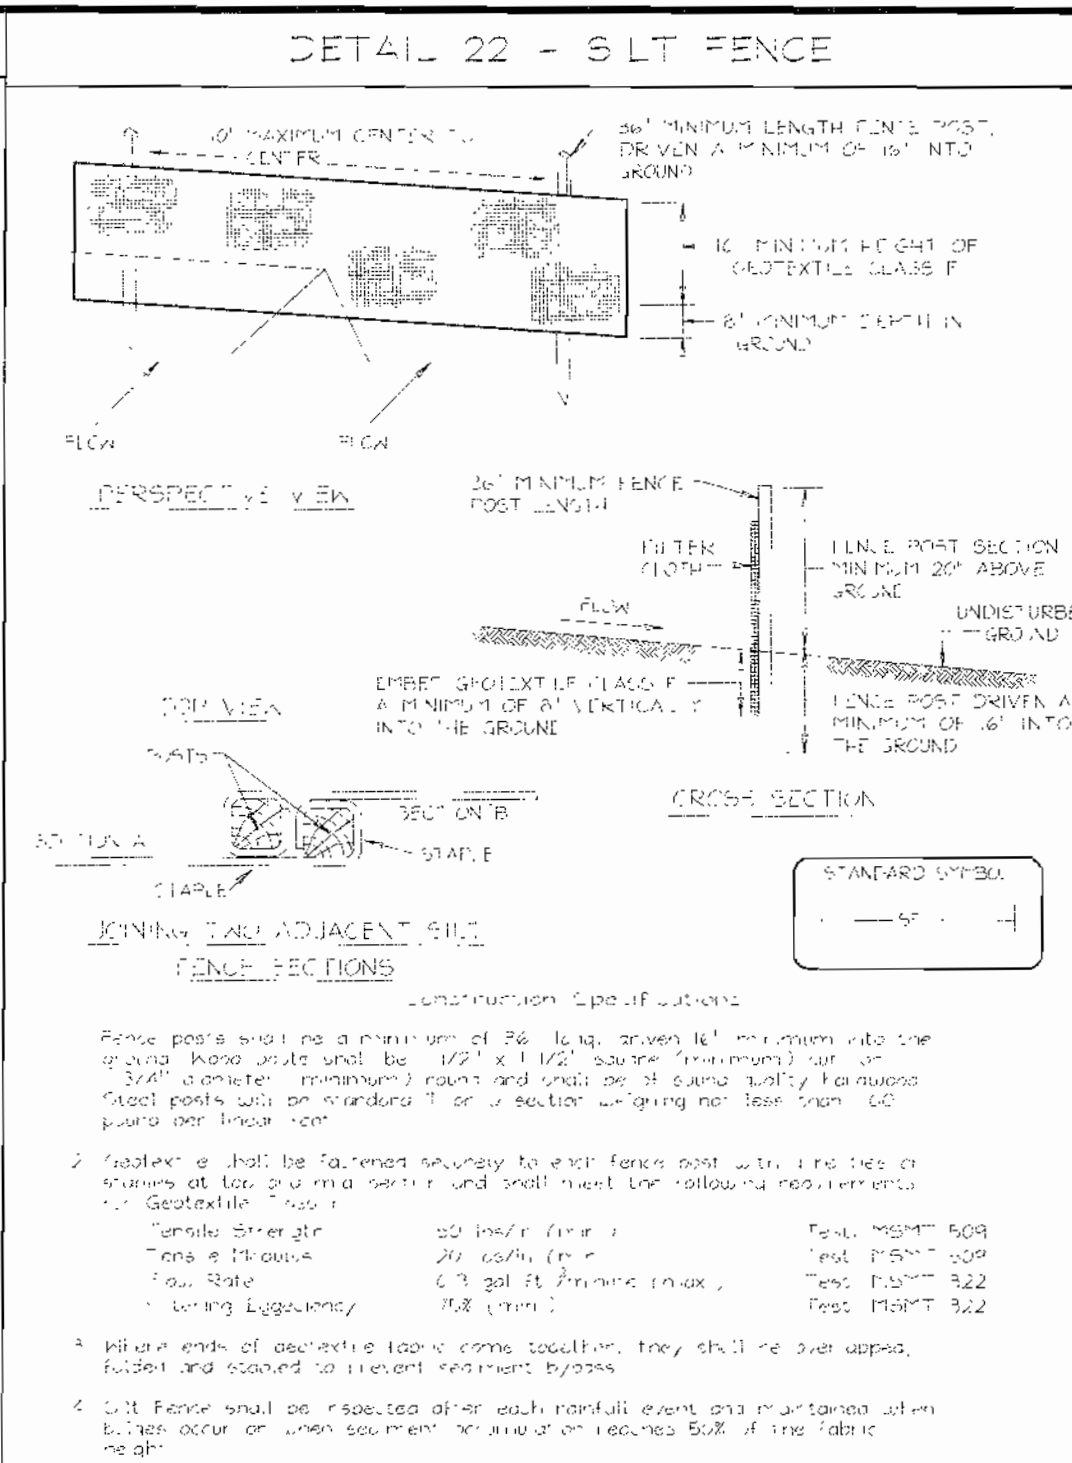 DETAIL 22 - SILT FENCE
10' MAXIMUM CENTER TO
CENTER
36" MINIMUM LENGTH FENCE POST,
DRIVEN A MINIMUM OF 16" INTO
GROUND
16" MINIMUM HEIGHT OF
GEOTEXTILE CLASS F
8" MINIMUM DEPTH IN
GROUND
FLOW
FLOW
PERSPECTIVE VIEW
36" MINIMUM FENCE
POST LENGTH
FILTER
CLOTH
FENCE POST SECTION
MINIMUM 20" ABOVE
GROUND
FLOW
UNDISTURBE
GROUND
EMBED GEOTEXTILE CLASS F
A MINIMUM OF 8" VERTICALLY
INTO THE GROUND
FENCE POST DRIVEN A
MINIMUM OF 16" INTO
THE GROUND
TOP VIEW
POSTS
SECTION B
CROSS SECTION
SECTION A
STAPLE
STAPLE
STANDARD SYMBOL
SF
JOINING TWO ADJACENT SILT
FENCE SECTIONS
Construction Specifications
Fence posts shall be a minimum of 36" long driven 16" minimum into the
ground. Wood posts shall be 1 1/2" x 1 1/2" square (minimum) cut, or
1 3/4" diameter (minimum) round and shall be of sound quality hardwood.
Steel posts will be standard T or U section weighing not less than 1.00
pound per linear foot.
2. Geotextile shall be fastened securely to each fence post with wire ties or
staples at top and mid-section and shall meet the following requirements
for Geotextile Class F:
Tensile Strength 50 lbs/in (min.) Test: MSMT 509
Tensile Modulus 20 lbs/in (min.) Test: MSMT 509
Flow Rate 0.3 gal ft²/minute (max.) Test: MSMT 322
Filtering Efficiency 75% (min.) Test: MSMT 322
3. Where ends of geotextile fabric come together, they shall be overlapped,
folded and stapled to prevent sediment bypass.
4. Silt Fence shall be inspected after each rainfall event and maintained when
bulges occur or when sediment accumulation reaches 50% of the fabric
height.